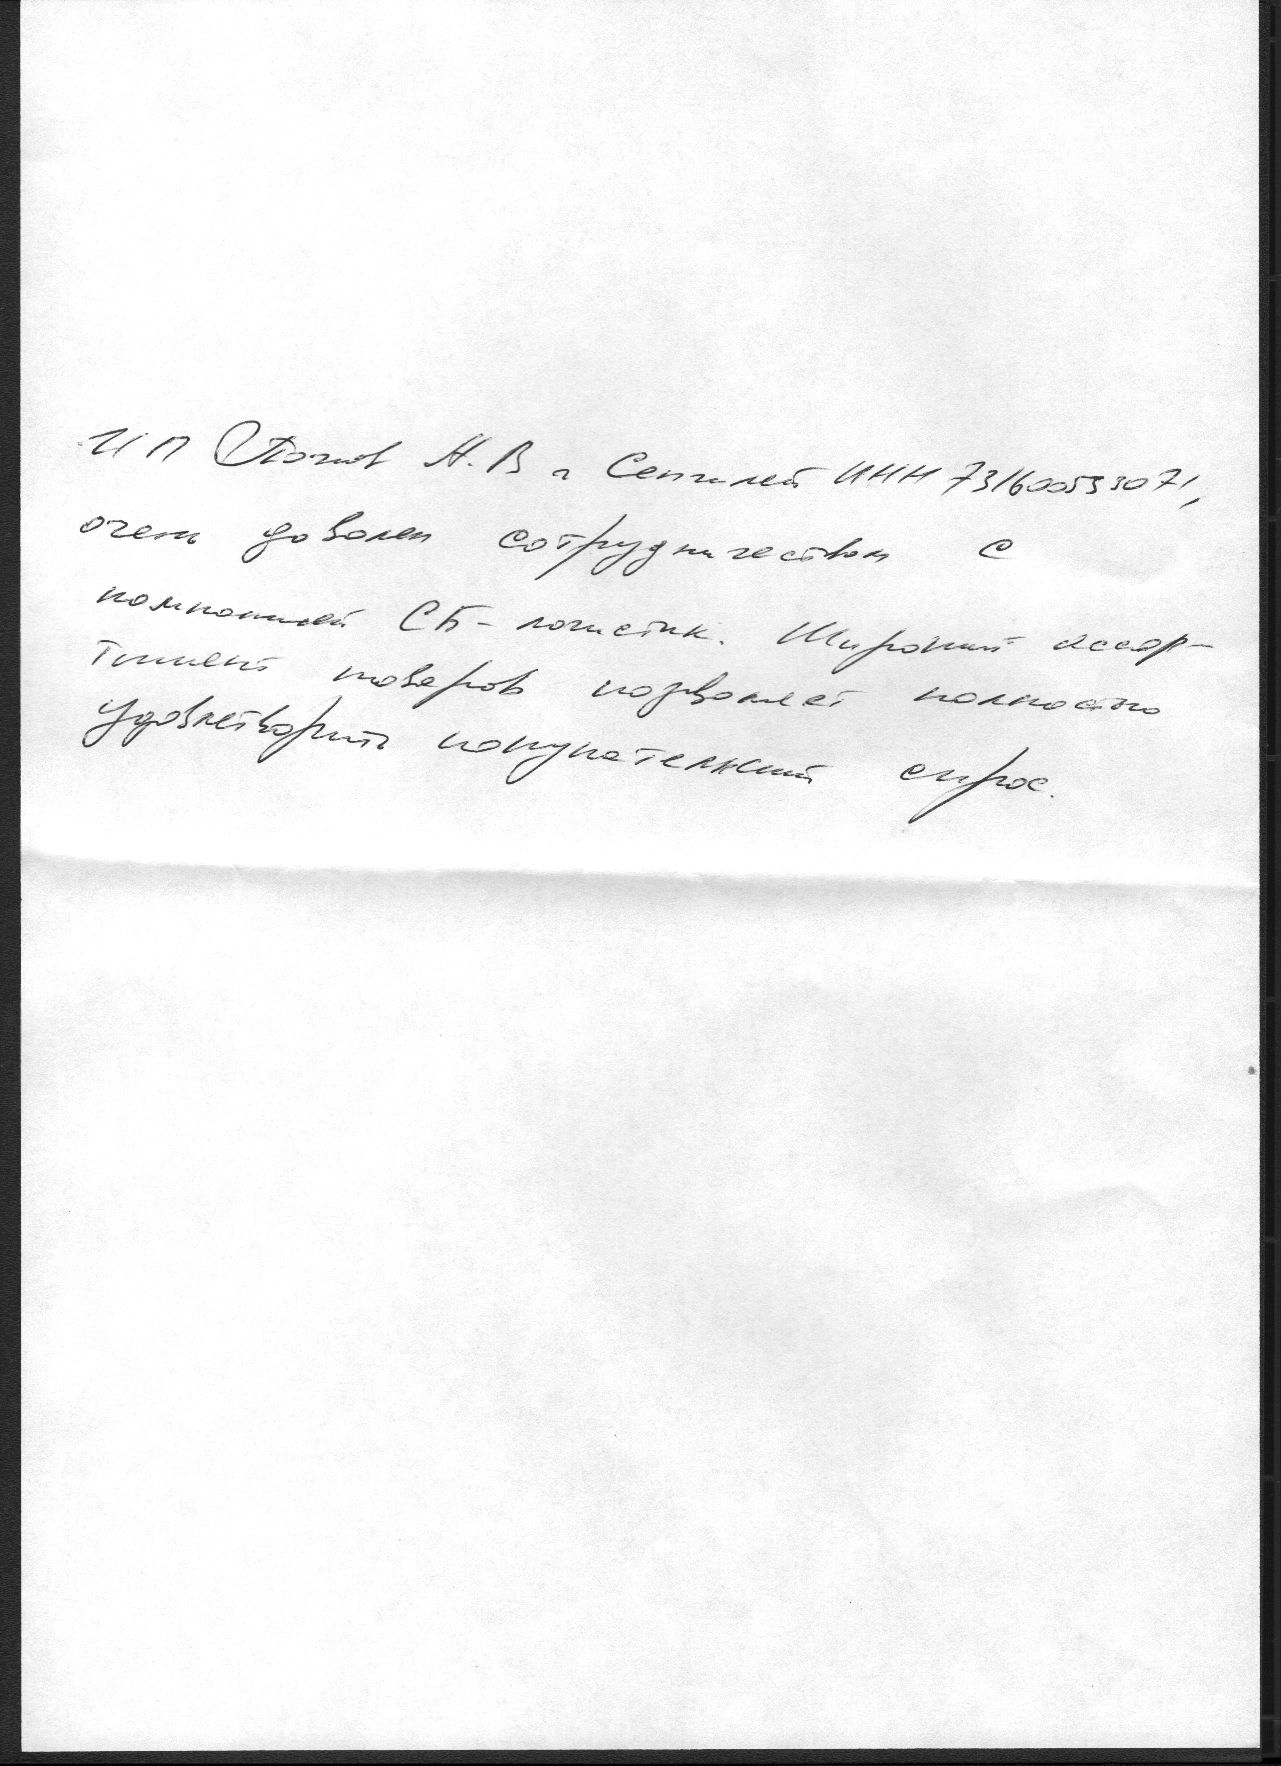 ИП А.В г Сенгилей ИНН 731600533071,
очень доволен сотрудничеством с
компанией СБ-логистик. Широкий ассор-
тимент товаров позволяет полностью
удовлетворить покупательский спрос.